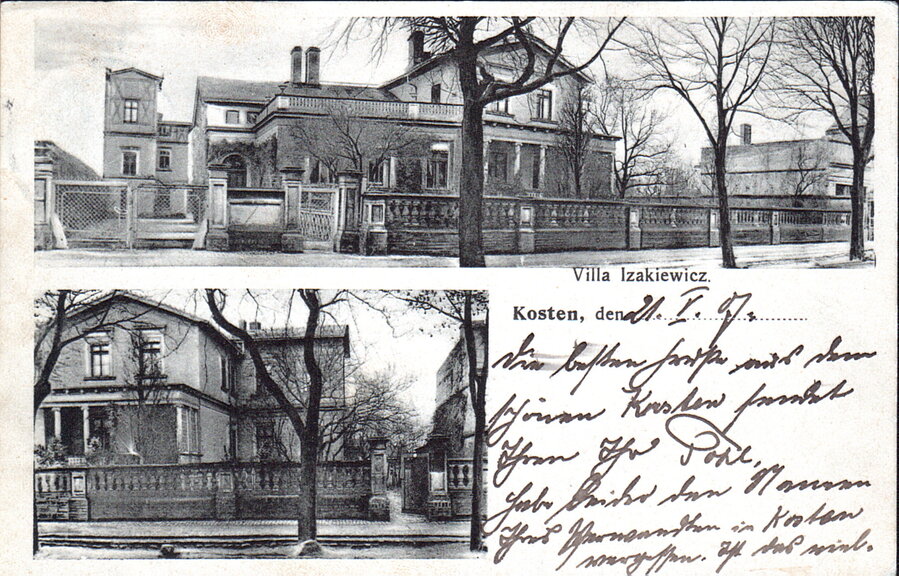 Villa Izakiewicz.
Kosten, den 21. V. 07.
Die besten Grüße aus dem
schönen Kosten sendet
Ihnen Ihr
habe leider den Namen
Ihres Verwandten in Kosten
vergessen. Ist das viel-